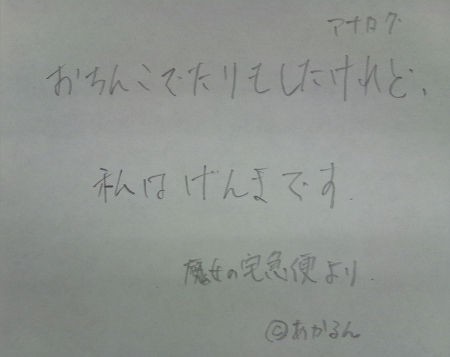 アナログ
おちんこでたりもしたけれど、
私はげんきです.
魔女の宅急便より.
©あかるん